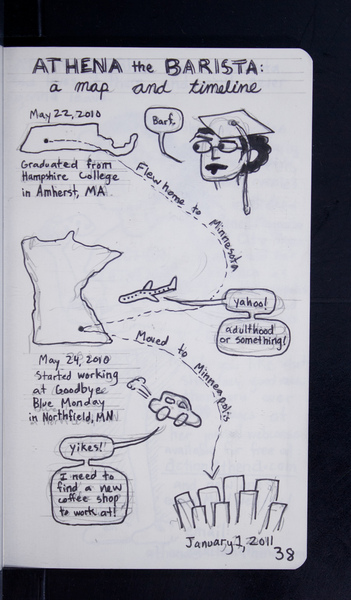 ATHENA the BARISTA:
a map and timeline
May 22, 2010
Barf.
Graduated from
Hampshire College
in Amherst, MA
Flew home to Minnesota
yahoo!
adulthood
or something!
Moved to Minneapolis
May 24, 2010
Started working
at Goodbye
Blue Monday
in Northfield, MN
yikes!
I need to
find a new
coffee shop
to work at!
January 1, 2011
38